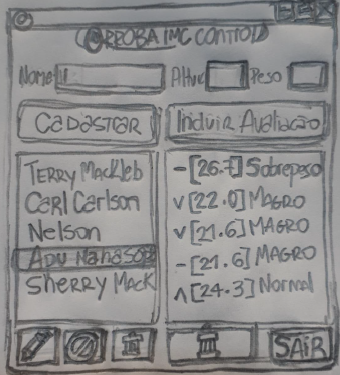 ARROBA IMC CONTROL
Nome Altur Peso
CADASTAR Incluir Avaliacão
TERRY Mackleb
Carl Carlson
Nelson
Apu Nahasap
SHERRY Mack
-[26.7] Sobrepeso
v[22.0] MAGRO
v[21.6] MAGRO
-[21.6] MAGRO
^[24.3] Normal
SAIR